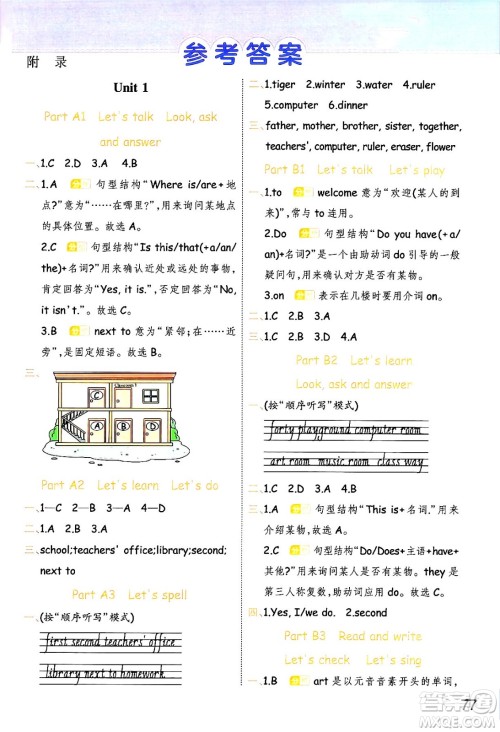 参考答案
附 录
Unit 1
Part A1 Let's talk Look, ask
and answer
一、1.C 2.D 3.A 4.B
二、1.A 句型结构“Where is/are+地
点?”意为“……在哪里?”,用来询问某地点
的具体位置。故选A。
2.C 句型结构“Is this/that(+a/an/
the)+名词?”用来确认近处或远处的事物,
肯定回答为“Yes, it is.”,否定回答为“No,
it isn't.”。故选C。
3.B next to 意为“紧邻;在……近
旁”,是固定短语。故选B。
三、
C
A B
Part A2 Let's learn Let's do
一、1—C 2—B 3—D 4—A
二、1.C 2.A 3.A
三、school;teachers' office;library;second;
next to
Part A3 Let's spell
一、(按“顺序听写”模式)
first second teachers' office
library next to homework
二、1.tiger 2.winter 3.water 4.ruler
5.computer 6.dinner
三、father, mother, brother, sister, together,
teachers', computer, ruler, eraser, flower
Part B1 Let's talk Let's play
一、1.to welcome 意为“欢迎(某人的到
来)”,常与 to 连用。
2.Do 句型结构“Do you have(+a/
an)+名词?”是一个由助动词 do 引导的一般
疑问句,用来确认对方是否有某物。
3.on 表示在几楼时要用介词 on。
二、1.C 2.B 3.A
三、1.C 2.B 3.D 4.A
Part B2 Let's learn
Look, ask and answer
一、(按“顺序听写”模式)
forty playground computer room
art room music room class way
二、1.C 2.D 3.A 4.B
三、1.A 句型结构“This is+名词.”用来
介绍某物。故选A。
2.C 句型结构“Do/Does+主语+have+
其他?”用来询问某人是否有某物。they 是
第三人称复数,助动词应用 do。故选C。
四、1.Yes, I/we do. 2.second
Part B3 Read and write
Let's check Let's sing
一、1.B art 是以元音音素开头的单词,
77